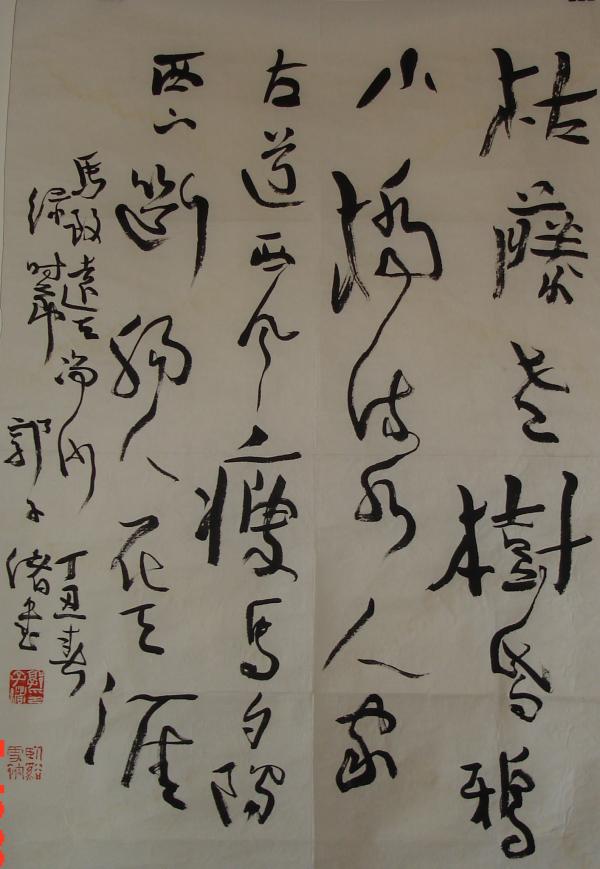 枯藤老樹昏鴉
小橋流水人家
古道西风瘦馬夕陽
西下斷腸人在天涯
馬致遠天净沙 丁丑春
绿时节 郭子緒书